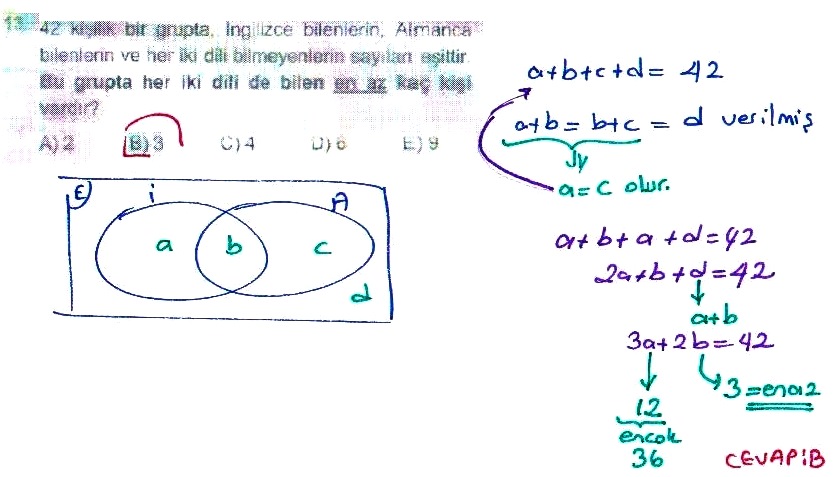 13. 42 kişilik bir grupta, İngilizce bilenlerin, Almanca
bilenlerin ve her iki dili bilmeyenlerin sayıları eşittir.
Bu grupta her iki dili de bilen en az kaç kişi
vardır?
A) 2 B) 3 C) 4 D) 6 E) 9
E i A
a b c
d
a+b+c+d = 42
a+b = b+c = d verilmiş
a = c olur.
a+b+a+d=42
2a+b+d=42
a+b
3a+2b=42
12 3 = en az
en çok
36
CEVAP:B